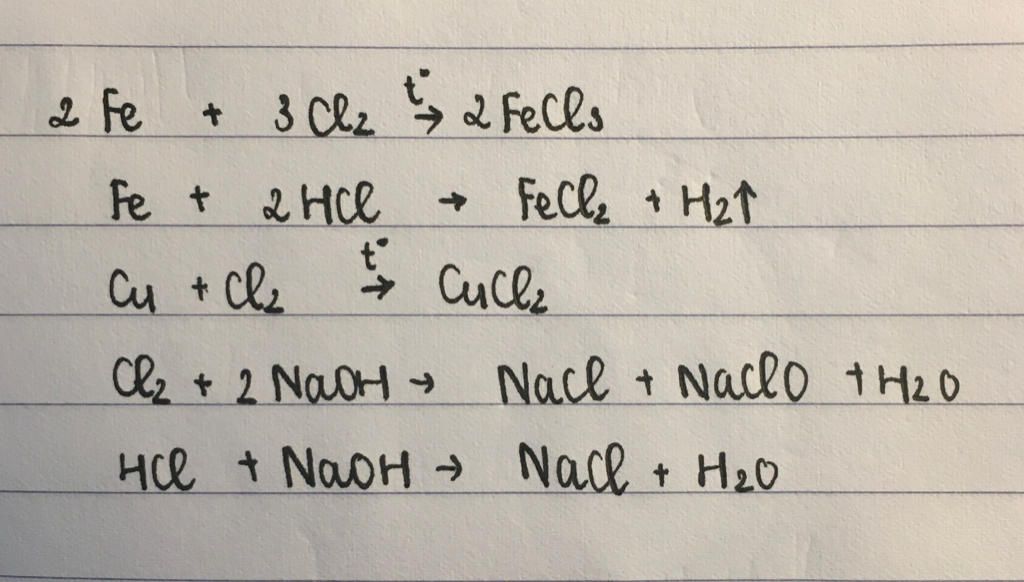 2 Fe + 3 Cl₂ t°→ 2 FeCl₃
Fe + 2 HCl → FeCl₂ + H₂↑
Cu + Cl₂ t°→ CuCl₂
Cl₂ + 2 NaOH → NaCl + NaClO + H₂O
HCl + NaOH → NaCl + H₂O